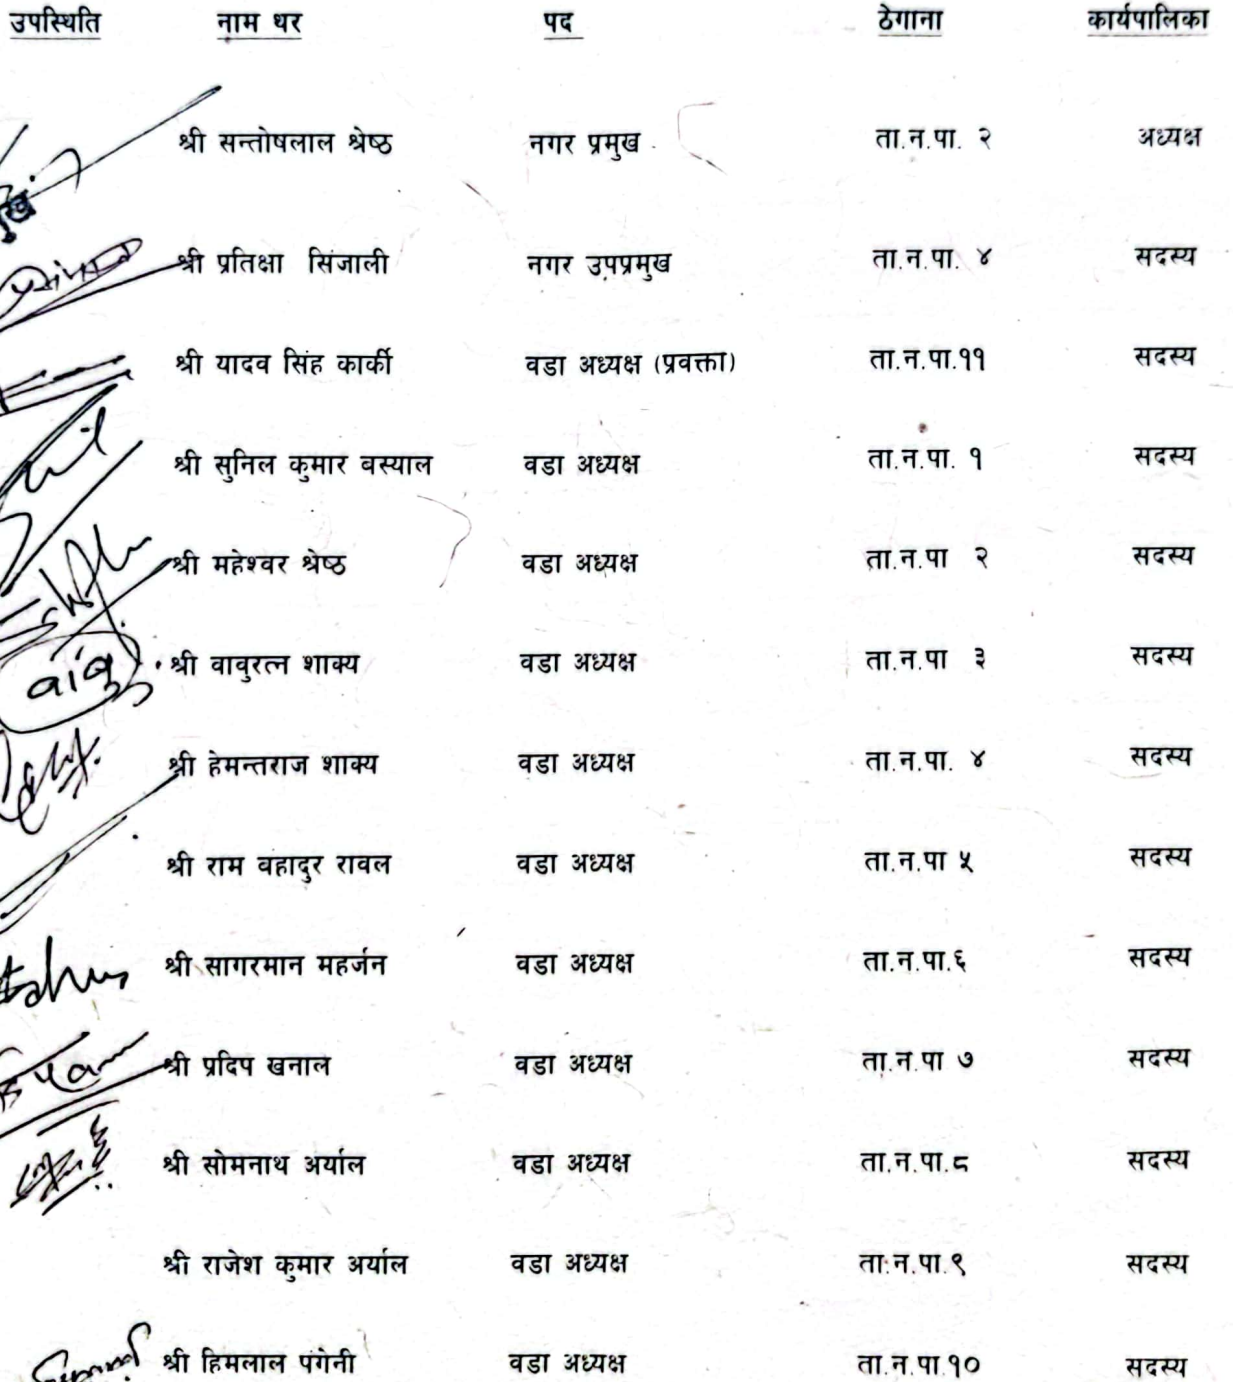 उपस्थिति नाम थर पद ठेगाना कार्यपालिका
श्री सन्तोषलाल श्रेष्ठ नगर प्रमुख ता.न.पा. २ अध्यक्ष
श्री प्रतिक्षा सिंजाली नगर उपप्रमुख ता.न.पा. ४ सदस्य
श्री यादव सिंह कार्की वडा अध्यक्ष (प्रवक्ता) ता.न.पा.११ सदस्य
श्री सुनिल कुमार वस्याल वडा अध्यक्ष ता.न.पा. १ सदस्य
श्री महेश्वर श्रेष्ठ वडा अध्यक्ष ता.न.पा २ सदस्य
बाबु श्री वावुरत्न शाक्य वडा अध्यक्ष ता.न.पा ३ सदस्य
श्री हेमन्तराज शाक्य वडा अध्यक्ष ता.न.पा. ४ सदस्य
श्री राम वहादुर रावल वडा अध्यक्ष ता.न.पा ५ सदस्य
श्री सागरमान महर्जन वडा अध्यक्ष ता.न.पा.६ सदस्य
श्री प्रदिप खनाल वडा अध्यक्ष ता.न.पा ७ सदस्य
श्री सोमनाथ अर्याल वडा अध्यक्ष ता.न.पा.८ सदस्य
श्री राजेश कुमार अर्याल वडा अध्यक्ष ता.न.पा.९ सदस्य
श्री हिमलाल पंगेनी वडा अध्यक्ष ता.न.पा.१० सदस्य